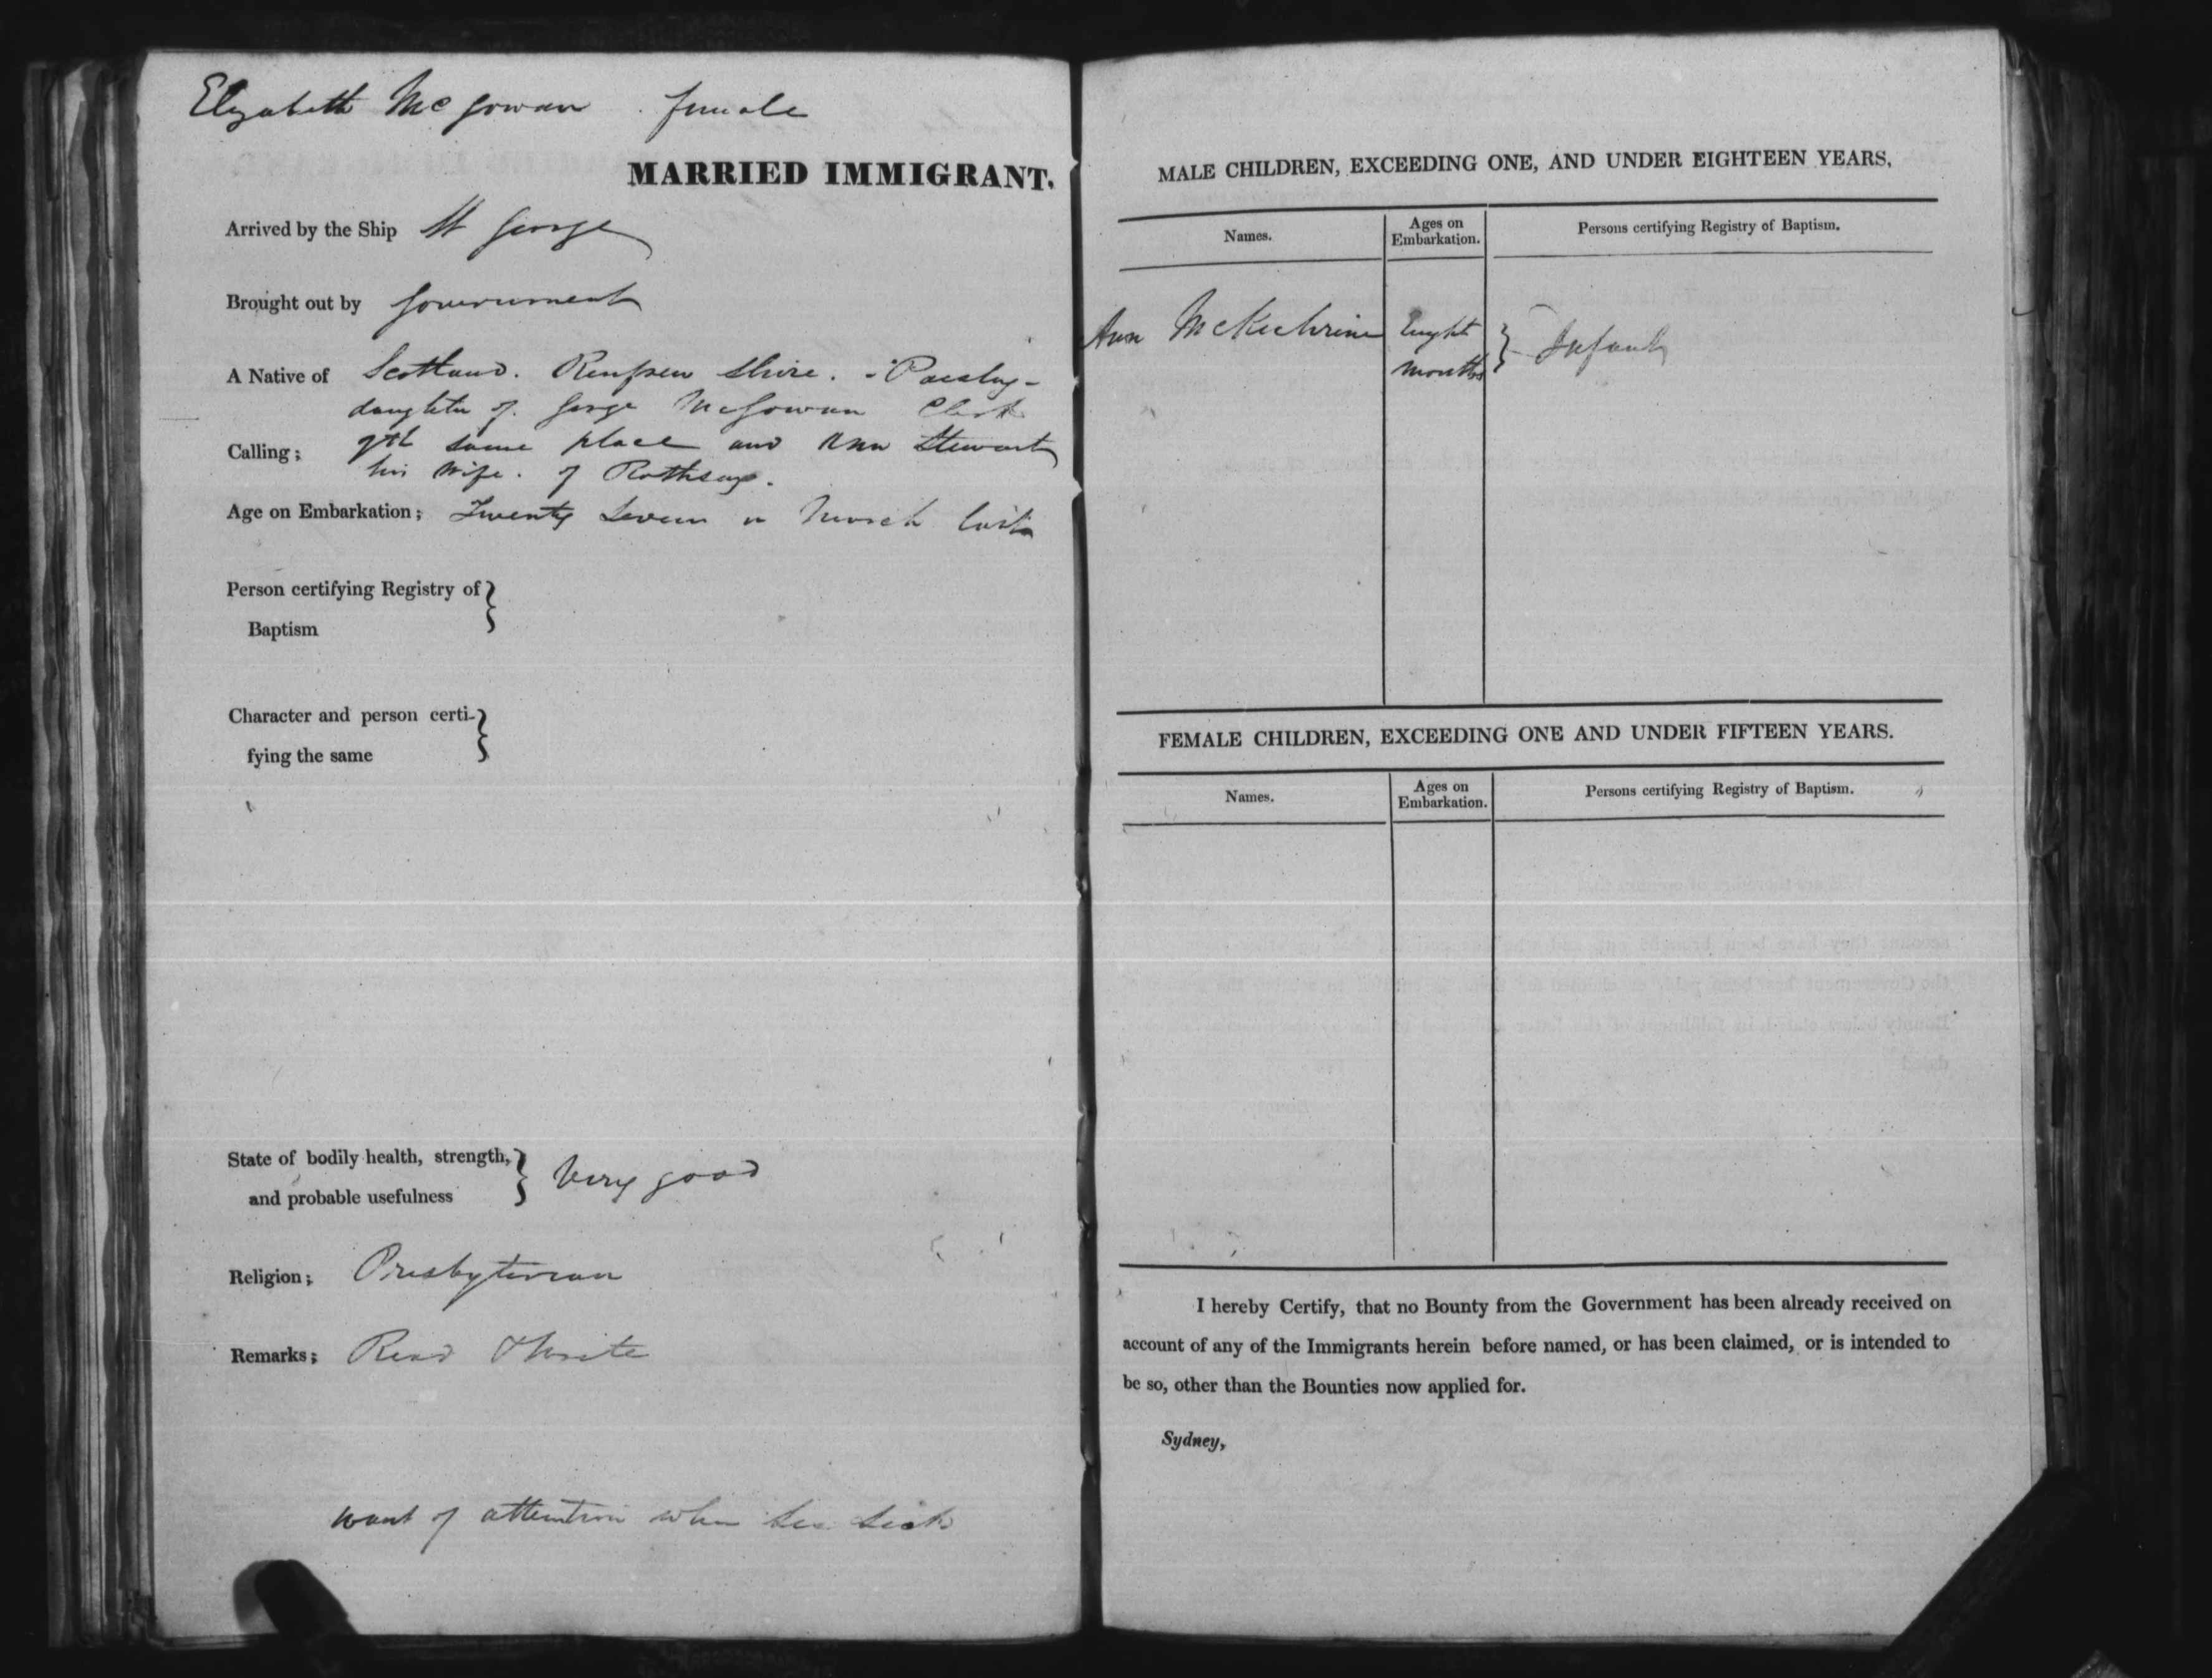 Elizabeth McGowan female
MARRIED IMMIGRANT.
Arrived by the Ship St George
Brought out by Government
A Native of Scotland. Renfrew Shire. - Paisley -
daughter of George McGowan Clerk
Calling; of the same place and Ann Stewart
his Wife. of Rothsay.
Age on Embarkation; Twenty Seven in March last
Person certifying Registry of }
Baptism
Character and person certi- }
fying the same
State of bodily health, strength, } Very good
and probable usefulness
Religion; Presbyterian
Remarks; Read & Write
want of attention when Sea Sick
MALE CHILDREN, EXCEEDING ONE, AND UNDER EIGHTEEN YEARS.
Names. Ages on Embarkation. Persons certifying Registry of Baptism.
Ann McKechrine Eight } Infant
months
FEMALE CHILDREN, EXCEEDING ONE AND UNDER FIFTEEN YEARS.
Names. Ages on Embarkation. Persons certifying Registry of Baptism.
I hereby Certify, that no Bounty from the Government has been already received on
account of any of the Immigrants herein before named, or has been claimed, or is intended to
be so, other than the Bounties now applied for.
Sydney,